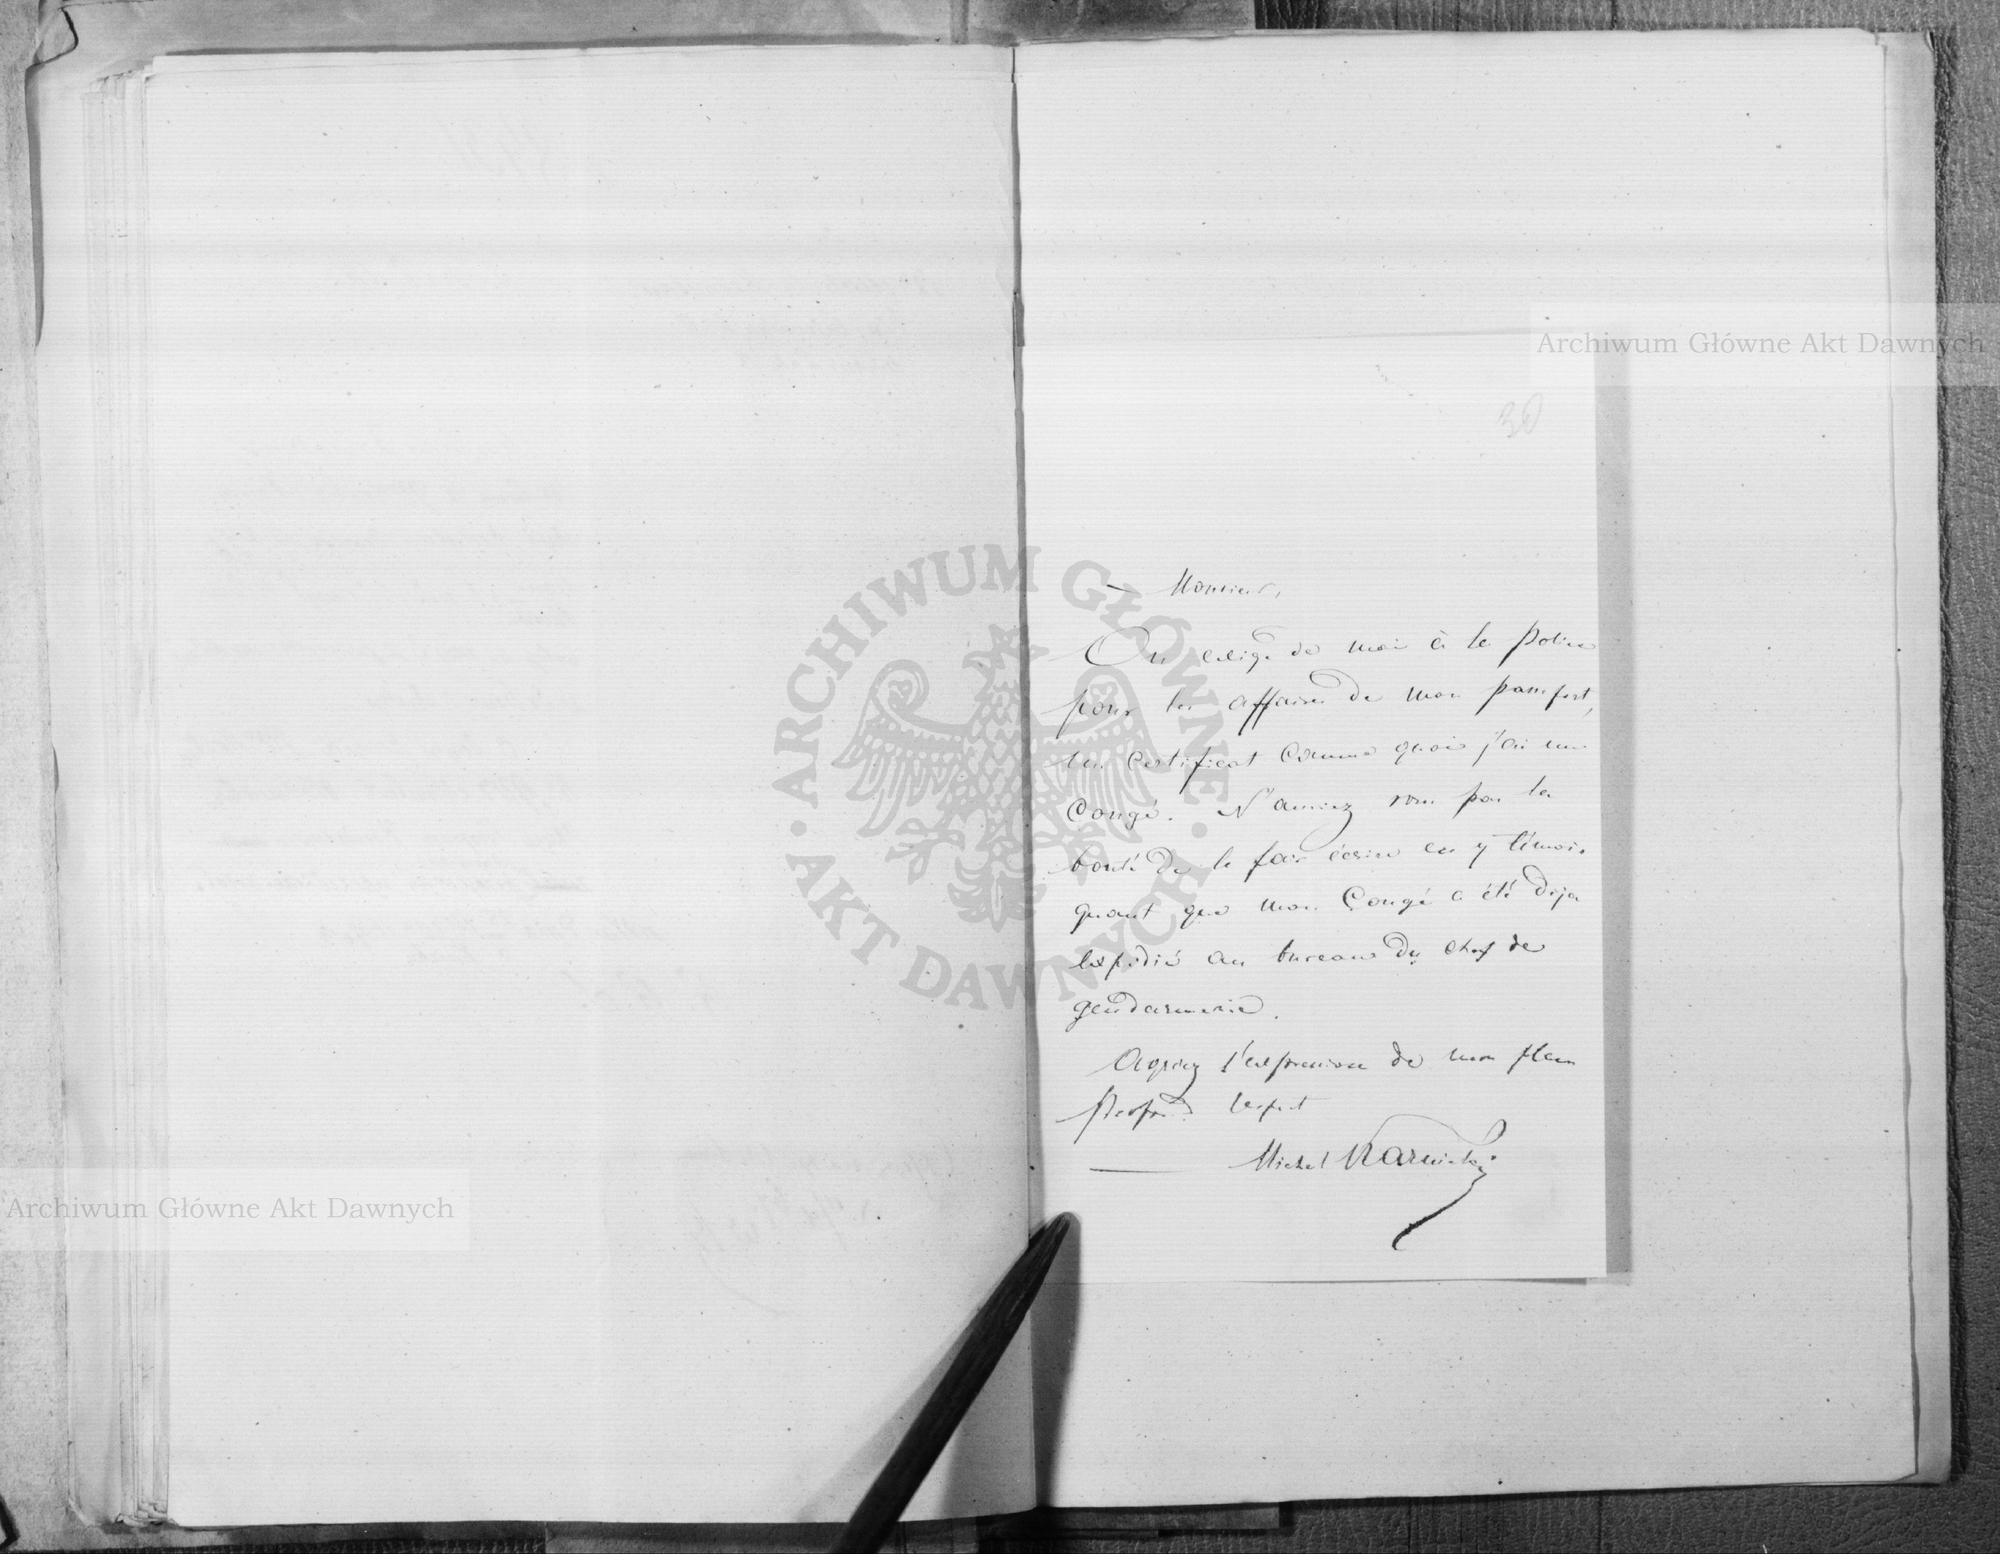 30
Monsieur,
On exige de moi à la police
pour les affaires de mon passeport,
un certificat comme quoi j'ai un
Congé. N'auriez vous pas la
bonté de le faire écrire en y témoi-
gnant que mon Congé a été déja
expédié au bureau du chef de
gendarmerie.
Agréez l'expression de mon plus
profond respect
Michel Karnicki
Archiwum Główne Akt Dawnych
Archiwum Główne Akt Dawnych
ARCHIWUM GŁÓWNE
AKT DAWNYCH